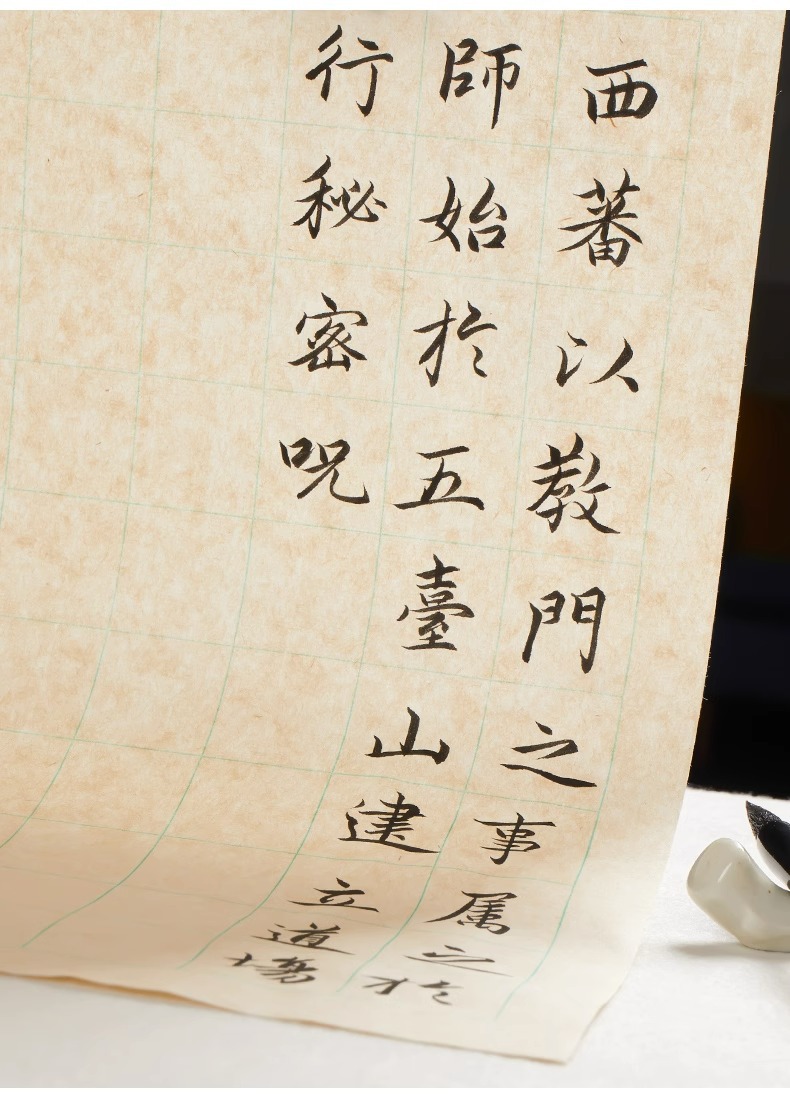 西蕃以教門之事属之於
師始於五臺山建立道場
行秘密呪